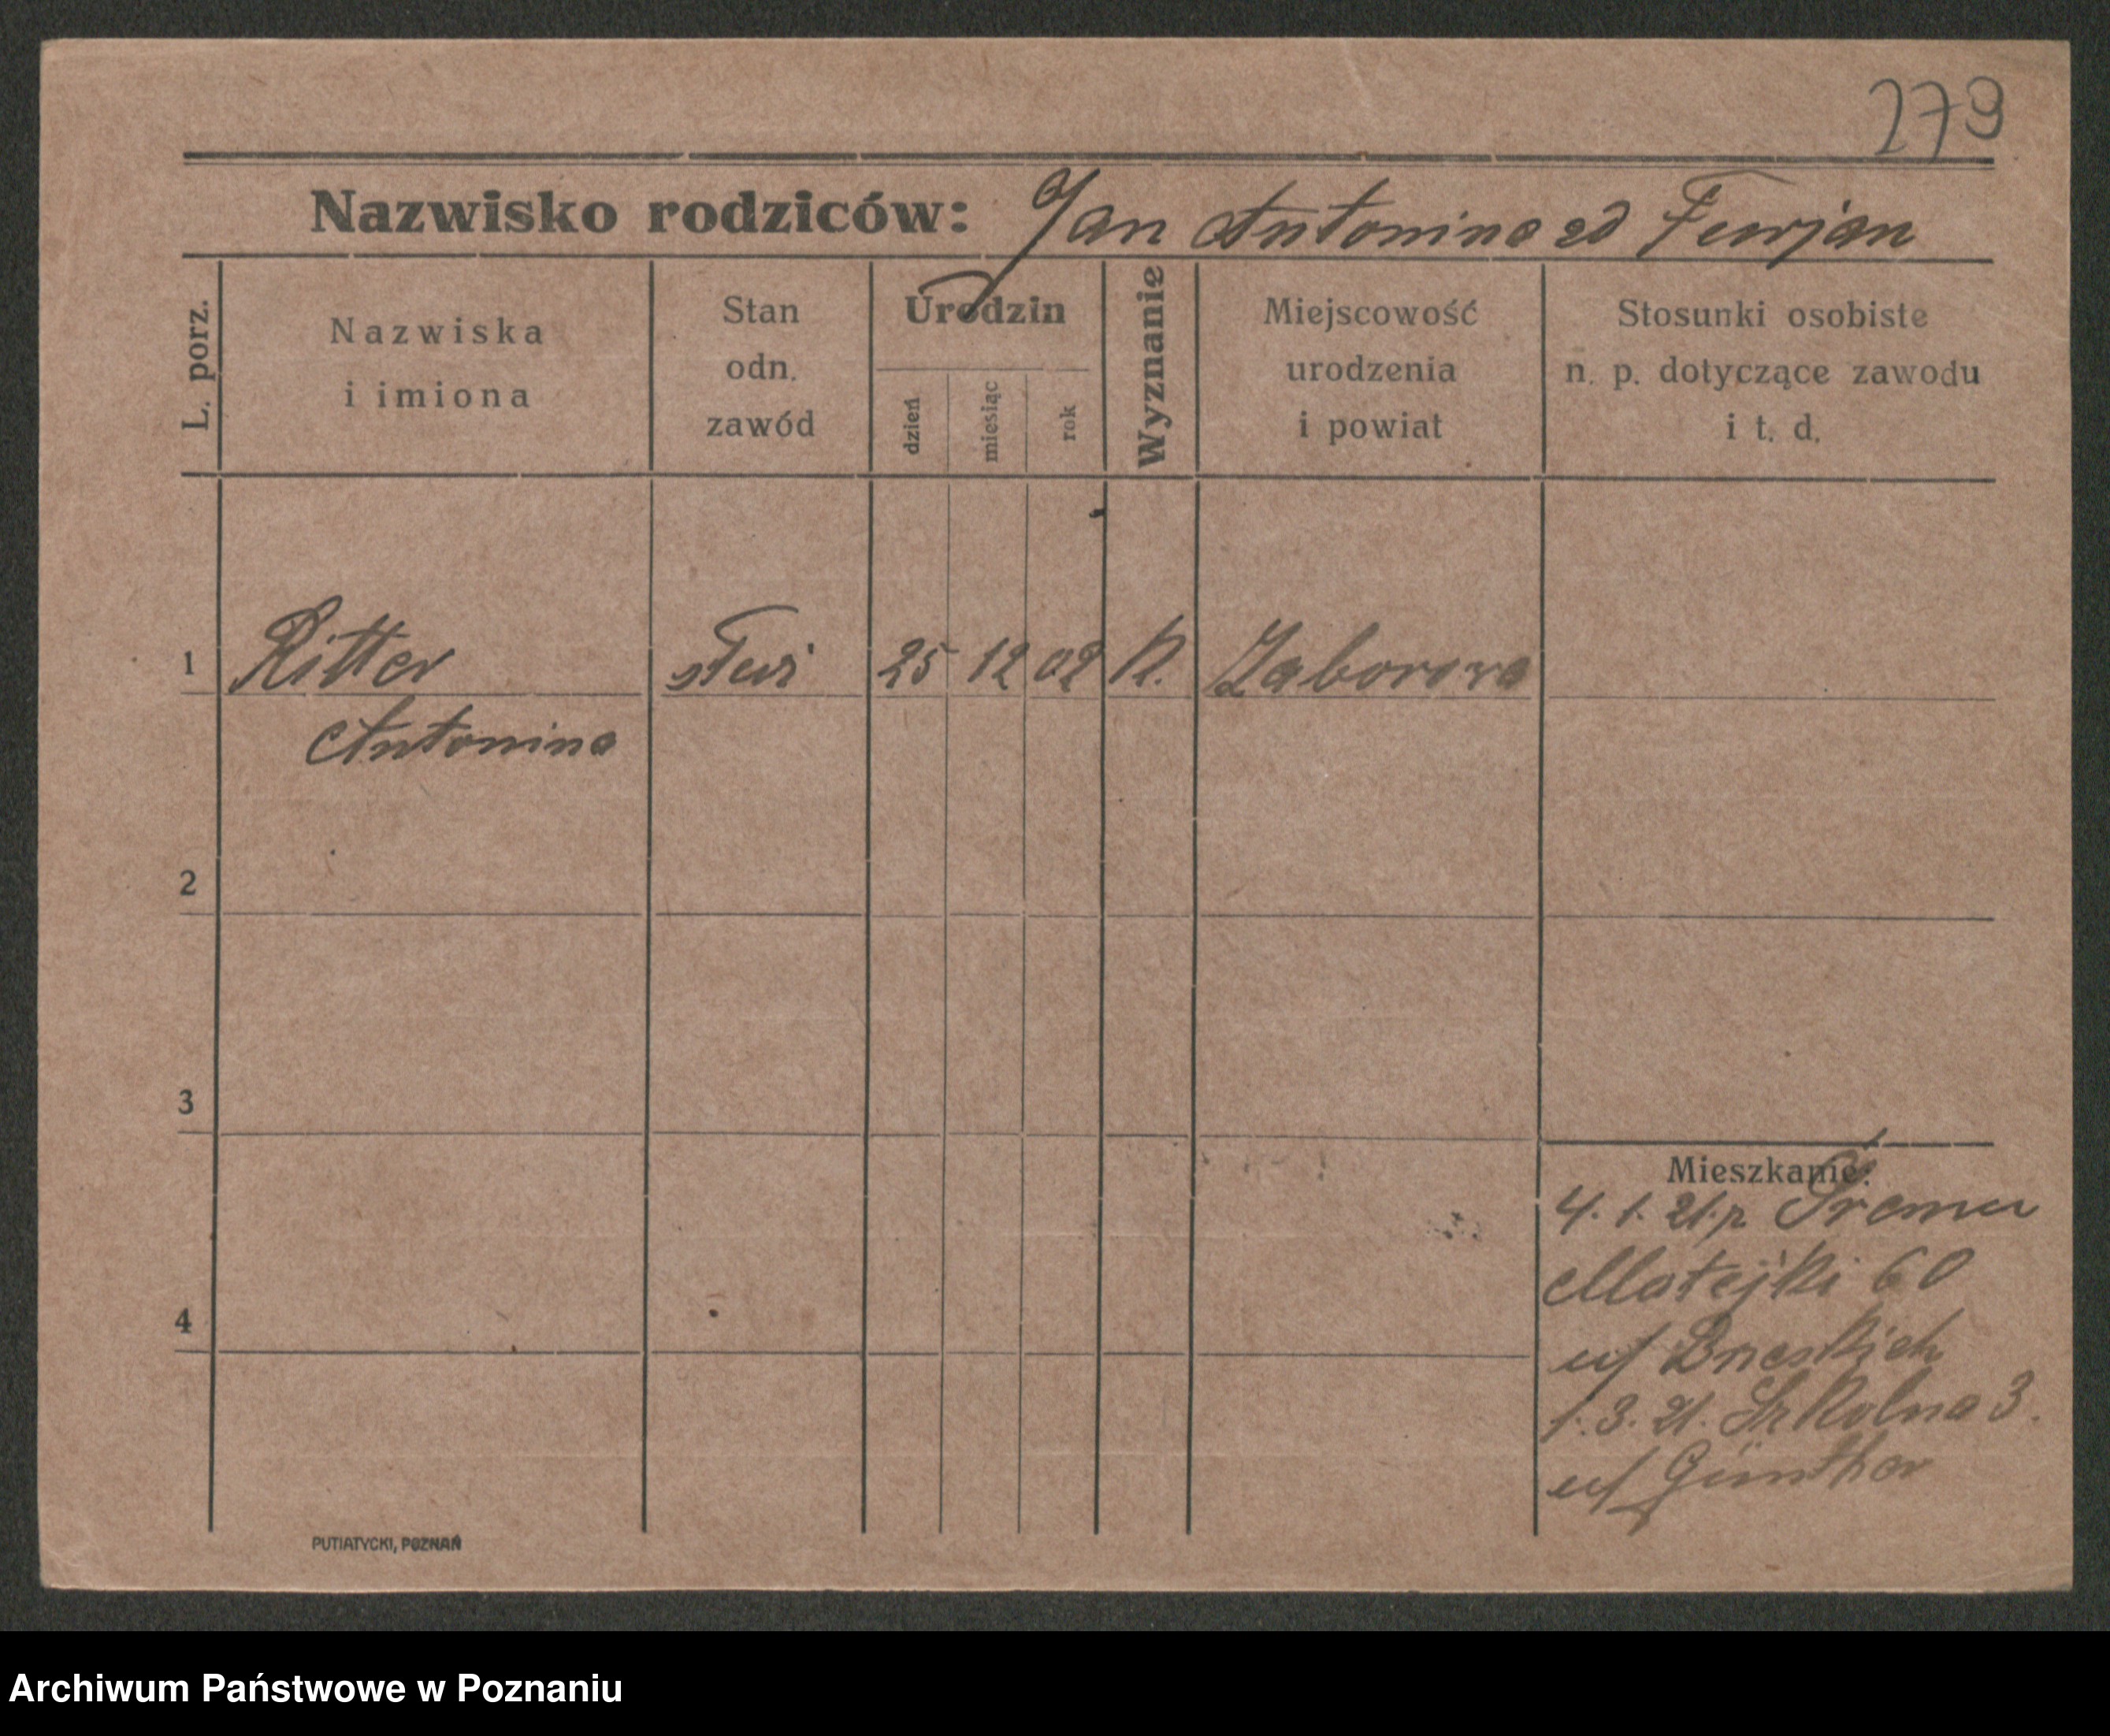 279
Nazwisko rodziców: Jan Antonina zd Furjan
L. porz.
Nazwiska
i imiona
Stan
odn.
zawód
Urodzin
dzień
miesiąc
rok
Wyznanie
Miejscowość
urodzenia
i powiat
Stosunki osobiste
n. p. dotyczące zawodu
i t. d.
1 Ritter 25 12 02 K. Zaborowo
Antonina
2
3
4
Mieszkanie:
4. 1. 21. z Śremu
Matejki 60
1. 3. 21. Szkolna 3.
Günther
PUTIATYCKI, POZNAŃ
Archiwum Państwowe w Poznaniu